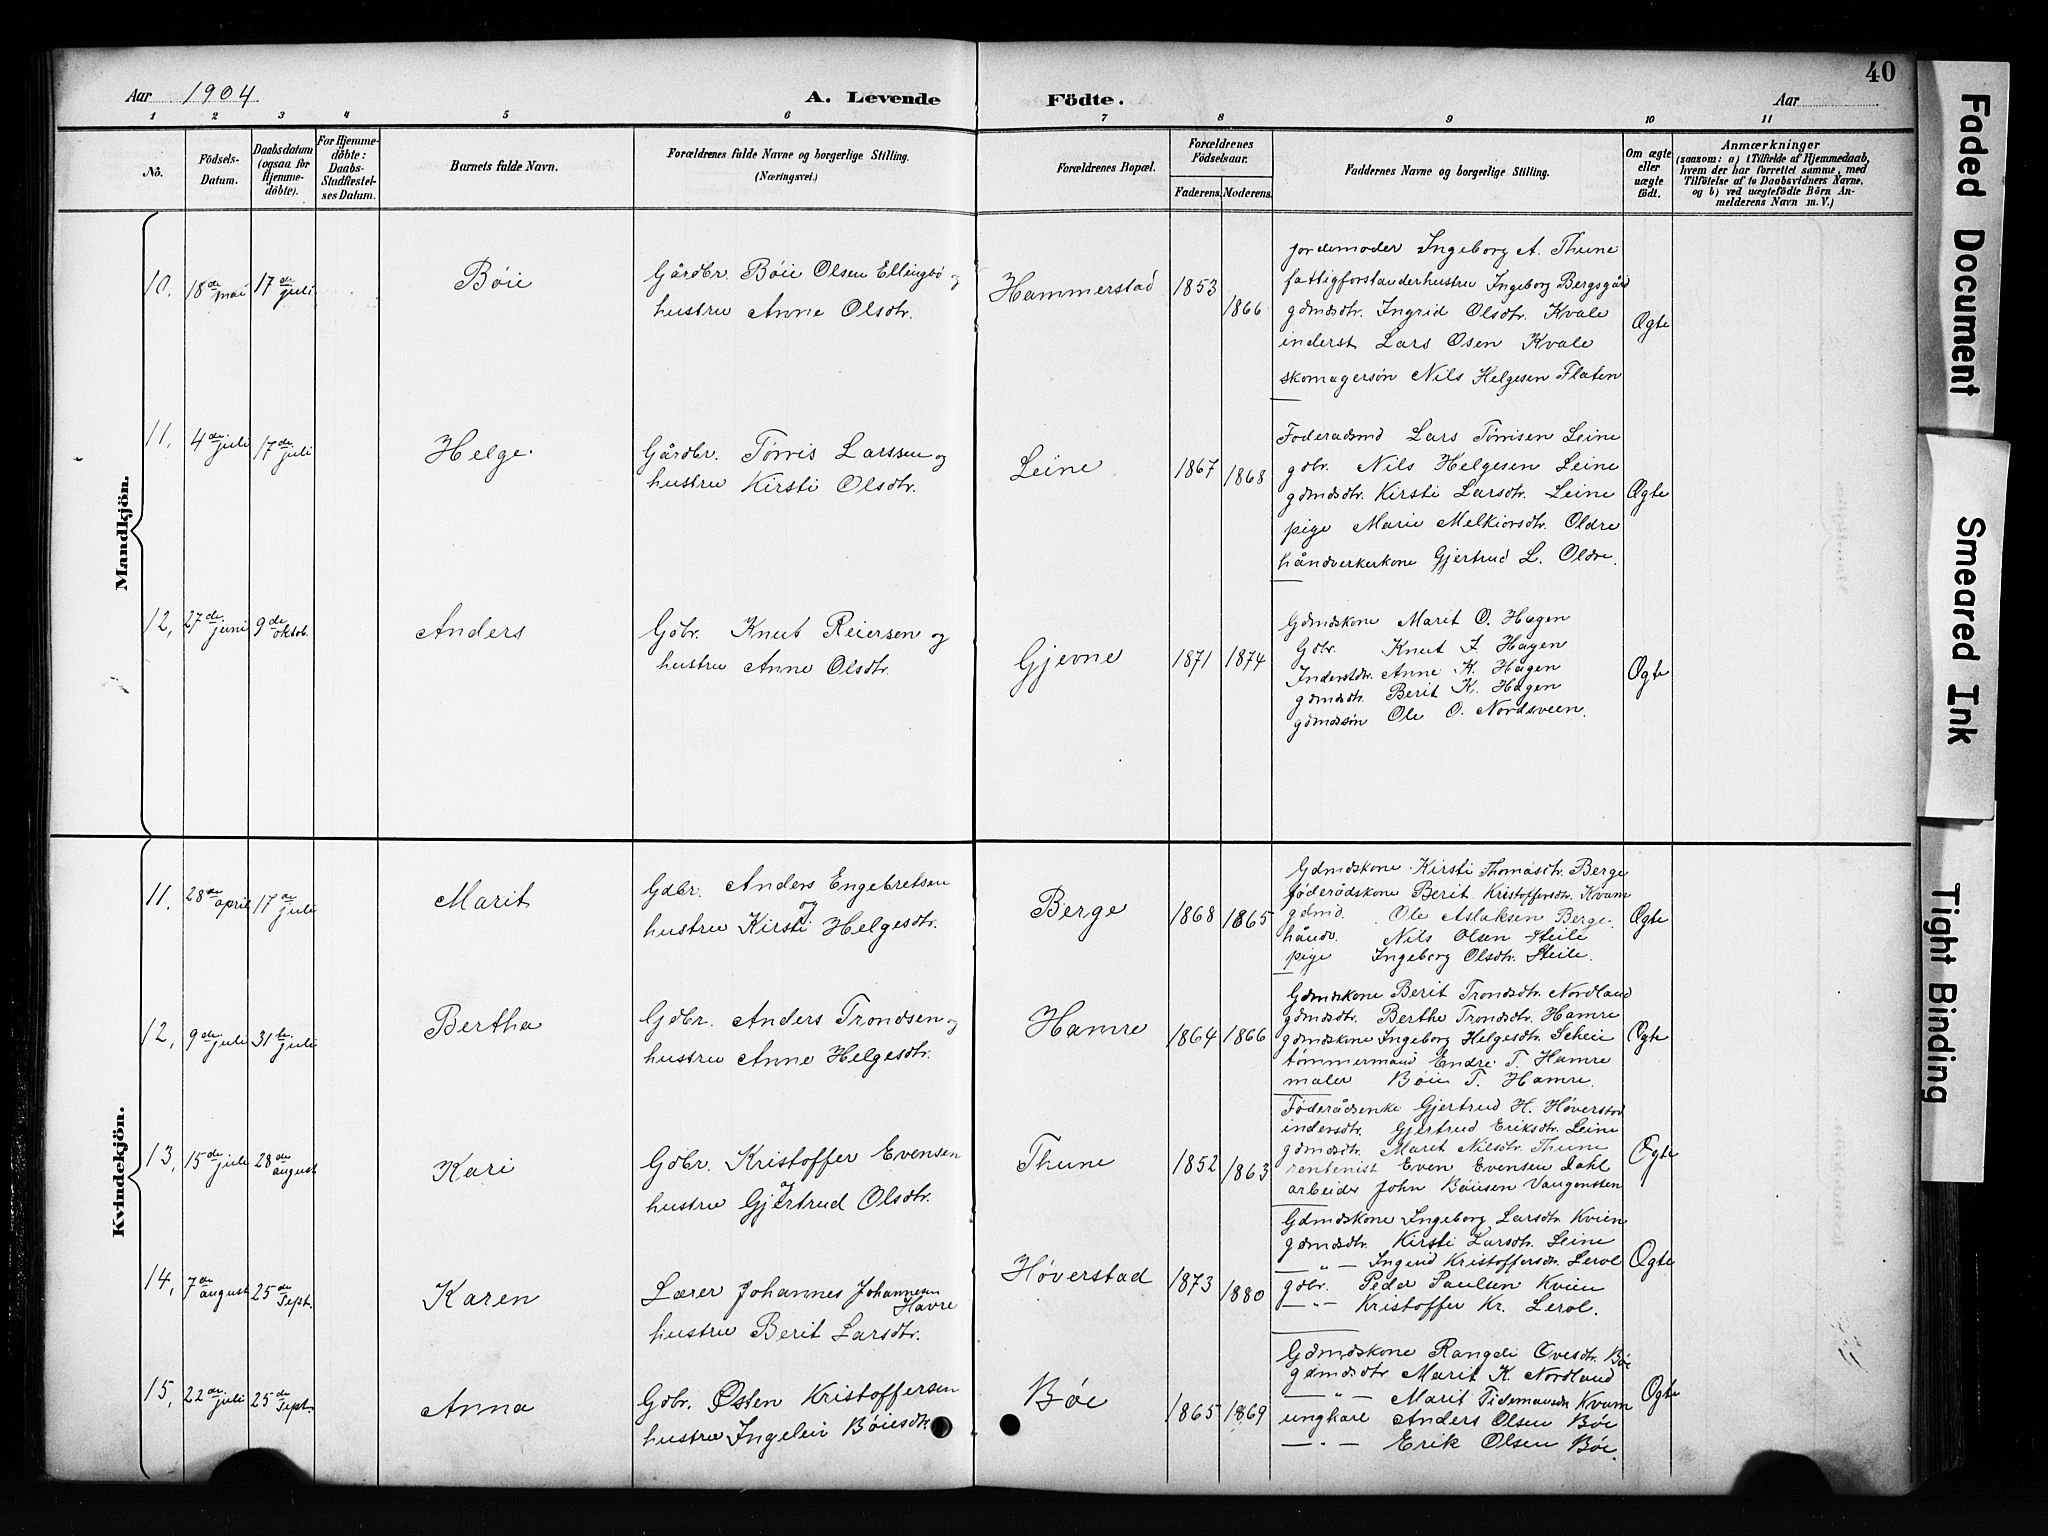 40
Aar 1904
A. Levende Födte.
Aar
1 2 3 4 5 6 7 8 9 10 11
Nô.
Födsels-Datum.
Daabsdatum (ogsaa for Hjemme-döbte).
For Hjemme-döbte: Daabs-Stadfæstelses Datum.
Barnets fulde Navn.
Forældrenes fulde Navne og borgerlige Stilling. (Næringsvei.)
Forældrenes Bopæl.
Forældrenes Födselsaar.
Faderens. Moderens.
Faddernes Navne og borgerlige Stilling.
Om ægte eller uægte födt.
Anmærkninger
(saasom: a) i Tilfælde af Hjemmedaab,
hvem der har forrettet samme, med
Tilföielse af to Daabsvidners Navne,
og b) ved uægtefödte Börn An-
melderens Navn m. V.)
Mandkjön.
10. 18de mai 17de juli
Bøie
Gårdbr. Bøie Olsen Ellingbø og
hustru Anne Olsdtr.
Hammerstad
1853 1866
jordemoder Ingeborg A. Thune
fattigforstanderhustru Ingeborg Bergsgård
gdmdsdtr. Ingrid Olsdtr. Kvale
inderst Lars Osen Kvale
skomagersøn Nils Helgesen Flaten
Ægte
11. 4de juli 17de juli
Helge
Gårdbr. Tørris Larssen og
hustru Kirsti Olsdtr.
Leine
1867 1868
Foderadsmd Lars Tørrisen Leine
gdbr. Nils Helgesen Leine
gdmdsdtr. Kirsti Larsdtr. Leine
pige Marie Melkiorsdtr. Oldre
håndverkerkone Gjertrud L. Oldre.
Ægte
12. 27de juni 9de oktob.
Anders
Gdbr. Knut Reiersen og
hustru Anne Olsdtr.
Gjevne
1871 1874
Gdmdskone Marit O. Hagen
Gdbr. Knut I. Hagen
Inderstdtr. Anne K. Hagen
gdmdsdtr. Berit K. Hagen
gdmdssøn Ole O. Nordsveen.
Ægte
Kvindekjön.
11. 28de april 17de juli
Marit
Gdbr. Anders Engebretsen
og
hustru Kirsti Helgesdtr.
Berge
1868 1865
Gdmdskone Kirsti Thomasdtr. Berge
føderådskone Berit Kristoffersdtr. Kvam
gdmd. Ole Aslaksen Berge.
håndv. Nils Olsen Steile
pige Ingeborg Olsdtr. Steile.
Ægte
12. 9de juli 31te juli
Bertha
Gdbr. Anders Trondsen og
hustru Anne Helgesdtr.
Hamre
1864 1866
Gdmdskone Berit Trondsdtr. Nordland
gdmdsdtr. Berthe Trondsdtr. Hamre
gdmdskone Ingeborg Helgesdtr. Scheie
tømmermand Endre T. Hamre
maler Bøie T. Hamre.
Ægte
13. 15de juli 28de august
Kari
Gdbr. Kristoffer Evensen
og
hustru Gjertrud Olsdtr.
Thune
1852 1863
Føderådsenke Gjertrud H. Høverstad
indersdtr. Gjertrud Eriksdtr. Leine
gdmdsdtr. Marit Nilsdtr. Thune
rentenist Even Evensen Dahl
arbeider John Bøiesen Vangensten
Ægte
14. 7de august 25de Sept.
Karen
Lærer Johannes Johannesen
Havre
hustru Berit Larsdtr.
Høverstad
1873 1880
Gdmdskone Ingeborg Larsdtr. Kvien
gdmdsdtr. Kirsti Larsdtr. Leine
—"— Ingrid Kristoffersdtr. Lerol
gdbr. Peder Paulsen Kvien
—"— Kristoffer Kr. Lerol.
Ægte
15. 22de juli 25de Sept.
Anna
Gdbr. Østen Kristoffersen
hustru Ingeleiv Bøiesdtr.
Bøe
1865 1869
Gdmdskone Rangdi Ovesdtr. Bøe
gdmdsdtr Marit K. Nordland
—"— Marit Tidemansdtr Kvam
ungkarl Anders Olsen Bøe
—"— Erik Olsen Bøe.
Ægte
Faded Document
Smeared Ink
Tight Binding